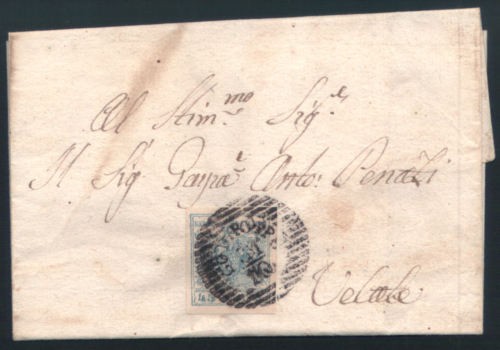 Al Stim.mo Sig.r
Il Sig. Gaspa.e Anto: Penati
45
Velate